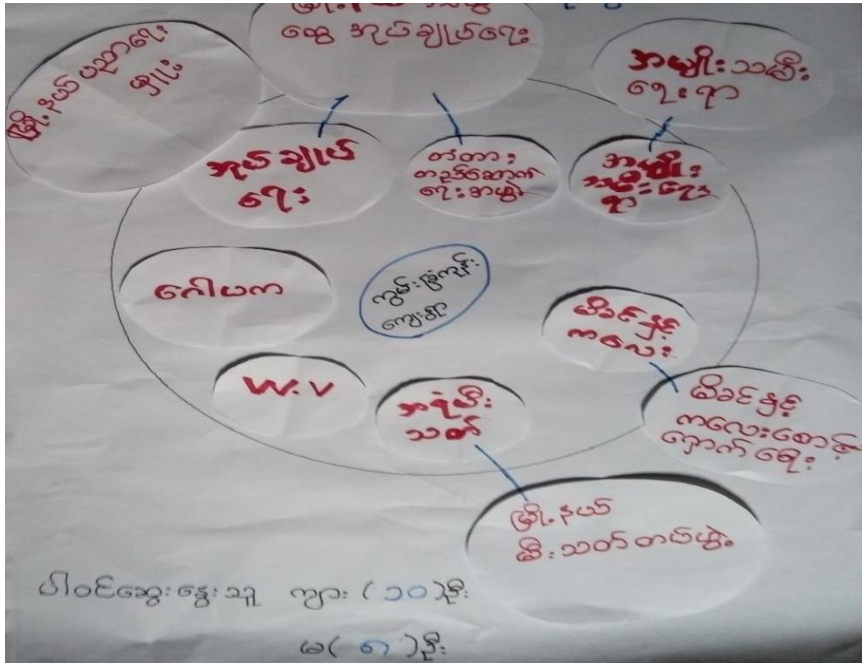 ထွေ အုပ်ချုပ်ရေး
မြို့နယ် ပညာရေး
မှူး
အမျိုးသမီး
ရေးရာ
အုပ်ချုပ်
ရေး
တံတား
တည်ဆောက်
ရေးအဖွဲ့
အမျိုး
သမီးရေး
ရာ
ဂေါပက
ကွမ်းခြံကုန်း
ကျေးရွာ
မိခင်နှင့်
ကလေး
W.V
အရံမီး
သတ်
မိခင်နှင့်
ကလေးစောင့်
ရှောက်ရေး
မြို့နယ်
မီးသတ်တပ်ဖွဲ့
ပါဝင်ဆွေးနွေးသူ ကျား (၁၀)ဦး
မ(၈)ဦး